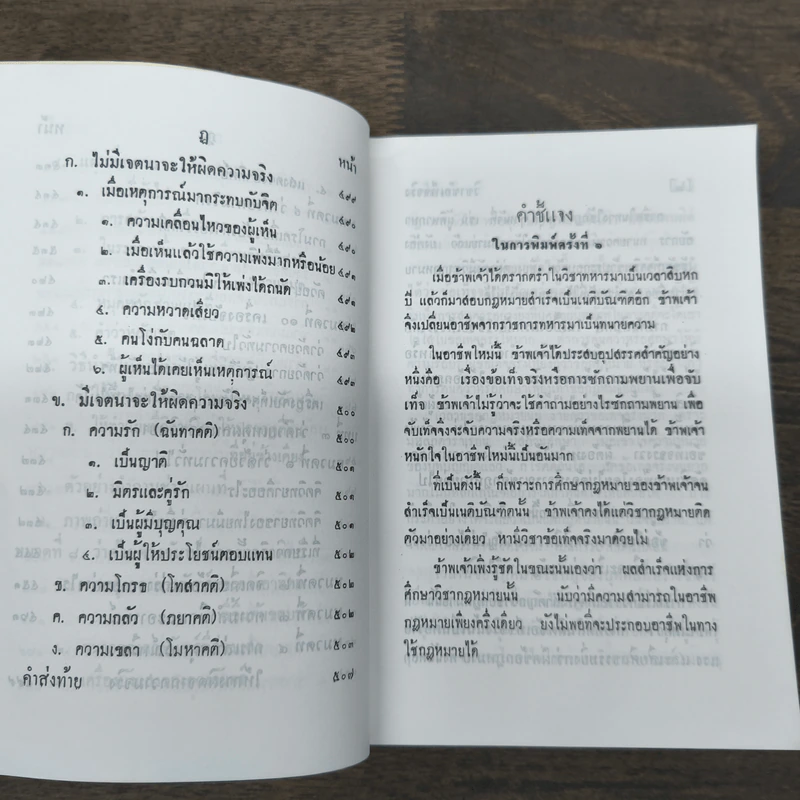 ฎ
หน้า
ก. ไม่มีเจตนาจะให้ผิดความจริง ๔๙๙
๑. เมื่อเหตุการณ์มากระทบกับจิต ๔๙๐
๑. ความเคลื่อนไหวของผู้เห็น ๔๙๐
๒. เมื่อเห็นแล้วใช้ความเพ่งมากหรือน้อย ๔๙๑
๓. เครื่องรบกวนมิให้เพ่งได้ถนัด ๔๙๑
๔. ความหวาดเสียว ๔๙๒
๕. คนโง่กับคนฉลาด ๔๙๓
๖. ผู้เห็นได้เคยเห็นเหตุการณ์ ๔๙๓
ข. มีเจตนาจะให้ผิดความจริง ๕๐๐
ก. ความรัก (ฉันทาคติ) ๕๐๐
๑. เป็นญาติ ๕๐๑
๒. มิตรและคู่รัก ๕๐๑
๓. เป็นผู้มีบุญคุณ ๕๐๑
๔. เป็นผู้ให้ประโยชน์ตอบแทน ๕๐๒
ข. ความโกรธ (โทสาคติ) ๕๐๒
ค. ความกลัว (ภยาคติ) ๕๐๒
ง. ความเขลา (โมหาคติ) ๕๐๓
คำส่งท้าย ๕๐๗
คำชี้แจง
ในการพิมพ์ครั้งที่ ๑
เมื่อข้าพเจ้าได้ตรากตรำในวิชาทหารมาเป็นเวลาสิบหก
ปี แล้วก็มาสอบกฎหมายสำเร็จเป็นเนติบัณฑิตอีก ข้าพเจ้า
จึงเปลี่ยนอาชีพจากราชการทหารมาเป็นทนายความ
ในอาชีพใหม่นี้ ข้าพเจ้าได้ประสบอุปสรรคสำคัญอย่าง
หนึ่งคือ เรื่องข้อเท็จจริงหรือการซักถามพยานเพื่อจับ
เท็จ ข้าพเจ้าไม่รู้ว่าจะใช้คำถามอย่างไรซักถามพยาน เพื่อ
จับเท็จจึงจะจับความจริงหรือความเท็จจากพยานได้ ข้าพเจ้า
หนักใจในอาชีพใหม่นี้เป็นอันมาก
ที่เป็นดังนี้ ก็เพราะการศึกษากฎหมายของข้าพเจ้าจน
สำเร็จเป็นเนติบัณฑิตนั้น ข้าพเจ้าคงได้แต่วิชากฎหมายติด
ตัวมาอย่างเดียว หามีวิชาข้อเท็จจริงมาด้วยไม่
ข้าพเจ้าเพิ่งรู้ชัดในขณะนั้นเองว่า ผลสำเร็จแห่งการ
ศึกษาวิชากฎหมายนั้น นับว่ามีความสามารถในอาชีพ
กฎหมายเพียงครึ่งเดียว ยังไม่พอที่จะประกอบอาชีพในทาง
ใช้กฎหมายได้